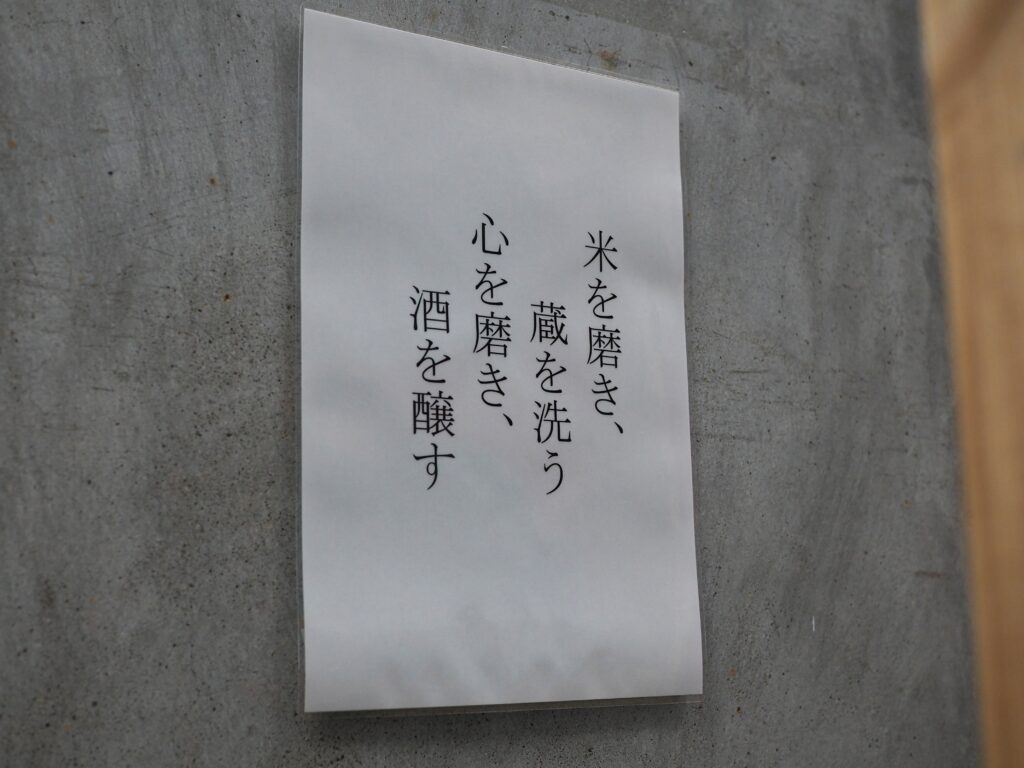 米を磨き、
蔵を洗う
心を磨き、
酒を醸す